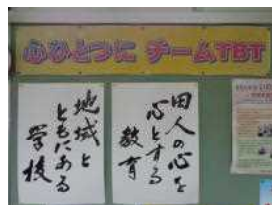 心ひとつに チームTBT
田人の心を
心とする
教育
地域と
ともにある
学校